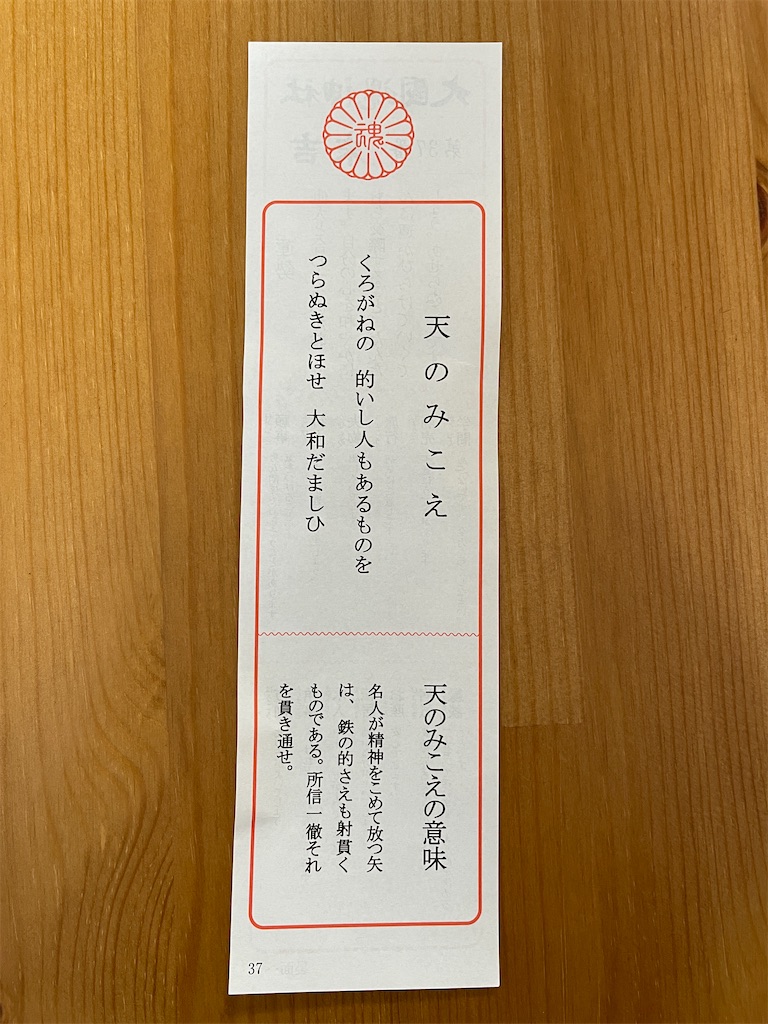 魂
天のみこえ
くろがねの　的いし人もあるものを
つらぬきとほせ　大和だましひ
天のみこえの意味
名人が精神をこめて放つ矢
は、鉄の的さえも射貫く
ものである。所信一徹それ
を貫き通せ。
37